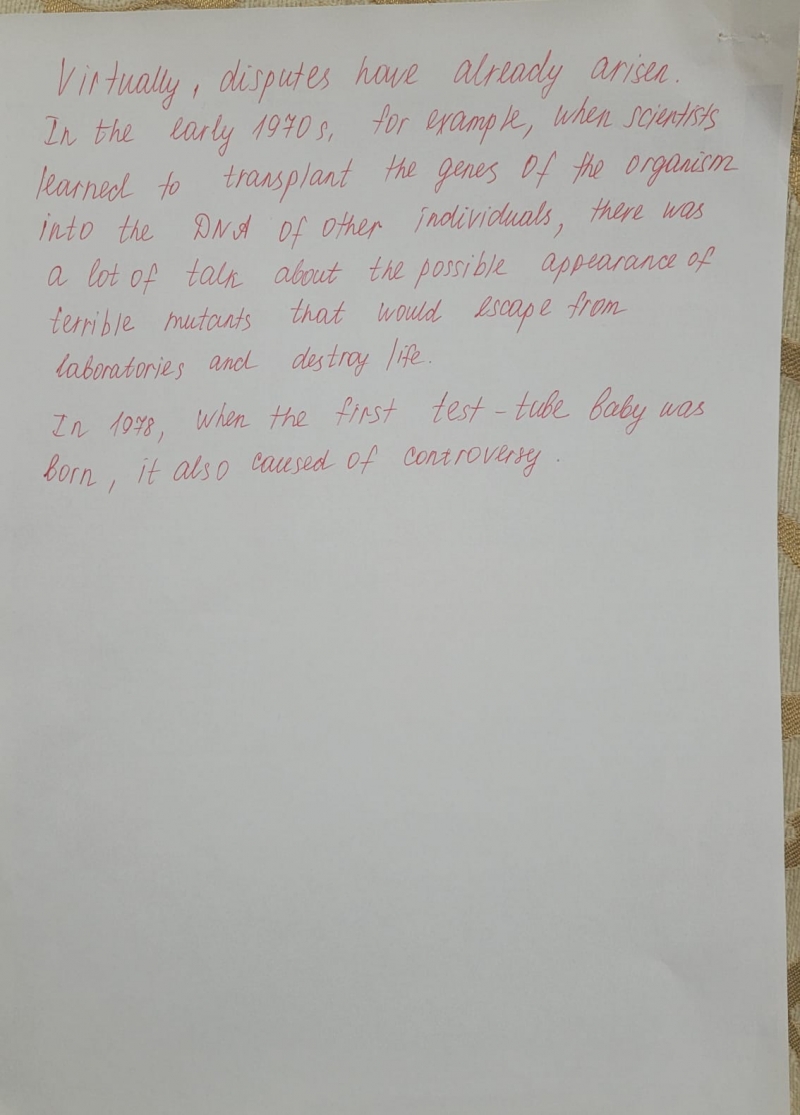 Virtually, disputes have already arisen.
In the early 1970s, for example, when scientists
learned to transplant the genes of the organism
into the DNA of other individuals, there was
a lot of talk about the possible appearance of
terrible mutants that would escape from
laboratories and destroy life.
In 1978, when the first test-tube baby was
born, it also caused of controversy.